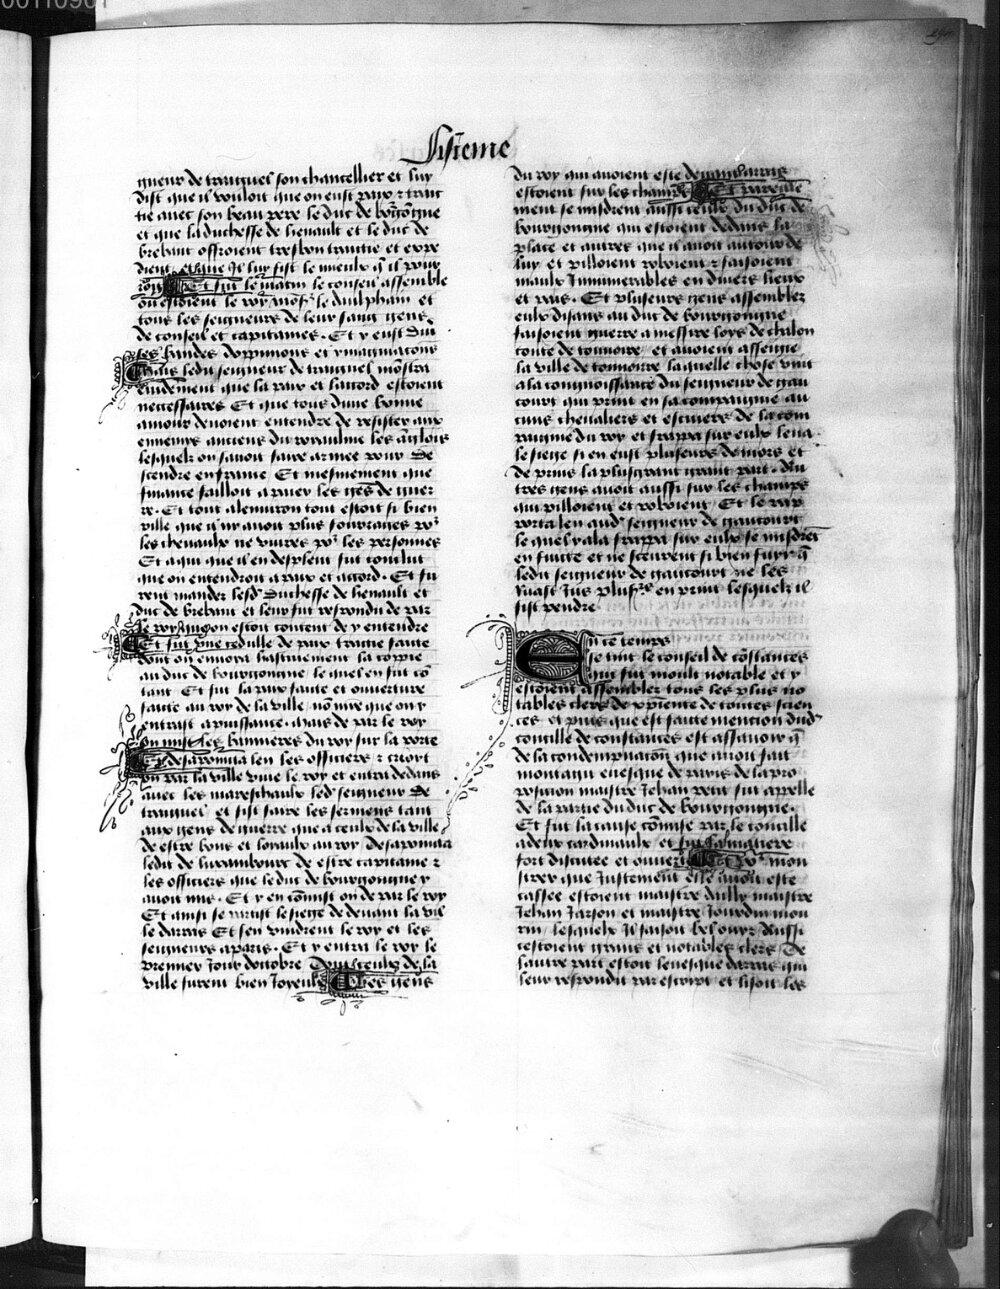 Sisieme
gneur de traignel son chancellier et luy
dist que il vouloit que on eust paix et trait
tie avec son beau pere le duc de bōgōgne
et que la duchesse de henault et le duc de
brebant offroient tresbon traittie et expe
dient et que Il luy fist le mieulx q̄ il pour
roit Et fut le matin le conseil assemble
ou estoient le roy monsr le daulphain et
tous les seigneurs de leur sang gens
de conseil et capitaines. Et y eust di
ses bandes doppinions et ymaginacōns
Mais ledit seigneur de traignel mōstra
euidēment que la paix et laccord estoient
necessaires Et que tous dune bonne
amour deuoient entendre de resister aux
ennemis anciens du royaulme les āglois
lesquelz on sauoit faire armee pour de
scendre en france Et mesmement que
finance failloit a paier les gēs de guer
re. Et tout alenuiron tout estoit si bien
pille que il ny auoit plus fourrages por
les cheuaulx ne viures por les personnes
Et a qui quil en desplest fut conclut
que on entendroit a paix et accord. Et fu
rent mander lesd duchesse de henault et
duc de brebant et leur fut respondu de par
le roy quon estoit content de y entendre
Et fut vne cedulle de paix traitie faitte
dont on enuoya hastiuement la coppie
au duc de bourgongne lequel en fut cō
tant Et fut la paix faitte et ouuerture
faitte au roy de la ville non mie que on y
entrast a puissance. Mais de par le roy
on mist les bannieres du roy sur la porte
Et desapointa len les officiers et crioit
on par la ville viue le roy et entra dedans
auec les mareschaulx led seigneur de
traignel et fist faire les sermens tant
aux gens de guerre que a ceulx de la ville
de estre bons et loyaulx au roy desapointa
ledit de luxambourc de estre capitaine et
les officiers que le duc de bourgongne y
auoit mis. Et y en cōmist on de par le roy
Et ainsi se partist le siege de deuant la vil
le darras Et sen vindrent le roy et les
seigneurs a paris. Et y entra le roy le
premier Jour doctobre Dont ceulx de la
ville furent bien Joyeulx Mes gens
du roy qui auoient este deuant arras
estoient sur les champs Et pareille
ment se misdrent aussi ceulx du duc de
bourgongne qui estoient dedans la
place et autres que il auoit autour de
luy et pilloient roboient et faisoient
maulx Innumerables en diuers lieux
et pais. Et plusieurs gens assemblez
eulx disans au duc de bourgongne
faisoient guerre a messire loys de chalon
conte de tonnoirre et auoient assegie
la ville de tonnoirre laquelle chose vint
a la congnoissance du seigneur de gau
court qui print en sa compaignie au
cuns cheualiers et escuiers de la com
paignie du roy et frappa sur eulx leua
le siege si en eust plusieurs de mors et
de prins la plusgrant part. Au
tres gens auoit aussi sur les champs
qui pilloient et roboient Et le rap
porta len aud seigneur de gaucourt
lequel y ala frappa sur eulx se misdrēt
en fuitte et ne sceurent si bien fuyr q̄
ledit seigneur de gaucourt ne les
Ruast Jus plusrs en print lesquelz il
fist pendre
En ce temps
se tint le conseil de cōstances
qui fut moult notable et y
estoient assemblez tous les plus no
tables clers de xpiente de toutes scien
ces et puis que est faitte mention dud
concille de constances est assauoir q̄
de la condempnacōn que auoit fait
montagu euesque de paris de la pro
posicion maistre Jehan petit fut appelle
de la partie du duc de bourgongne.
Et fut la cause cōmise par le concille
a deux cardinaulx et fut la matiere
fort discutee et ouuerte Et por mon
strer que Justement elle auoit este
cassee estoient maistre dailly maistre
Jehan Jarson et maistre Jourdin mori
rin lesquelx Il faisoit bel ouyr Aussi
cestoient grans et notables clers De
lautre part estoit leuesque darras qui
leur respondit par escript et lisoit les